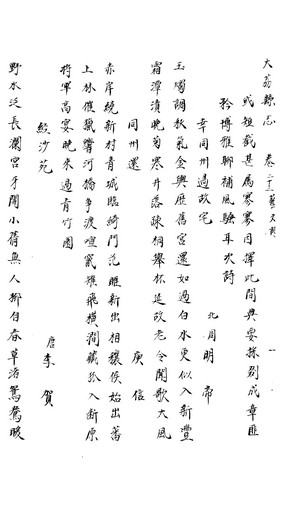 大荔縣志 卷 藝文 一
或短截甚屬寥寥因擇此間典要採列成章匪
矜博雅聊補風騷耳次詩
幸同州過故宅 北周明帝
玉燭調秋氣金輿歷舊宮還如過白水更似入新豐
霜潭漬晚菊寒井落疎桐舉杯延故老令聞歌大風
同州還 庾信
赤岸繞新村青城臨綺門范雎新出相穰侯始出蕃
上林催獵響河橋爭渡喧竄雉飛橫澗藏狐入斷原
將軍高宴晚來過青竹園
經沙苑 唐李賀
野水泛長瀾宮牙開小蒨無人柳自春草渚鴛鴦暖